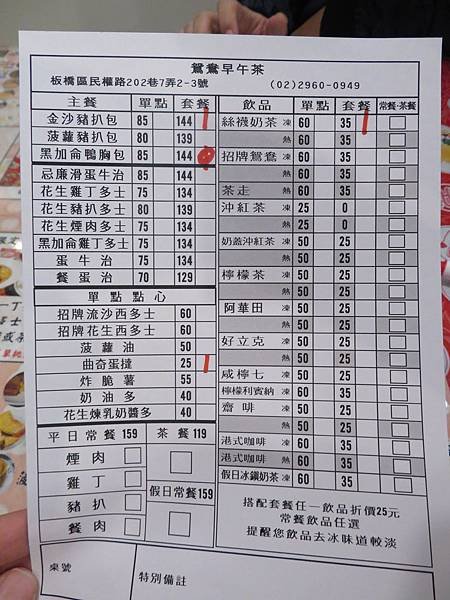 鴛鴦早午茶
板橋區民權路202巷7弄2-3號 (02)2960-0949
主餐 單點 套餐
金沙豬扒包 85 144
菠蘿豬扒包 80 139
黑加侖鴨胸包 85 144
忌廉滑蛋牛治 85 144
花生雞丁多士 75 134
花生豬扒多士 80 139
花生煙肉多士 75 134
黑加侖雞丁多士 75 134
蛋牛治 75 134
餐蛋治 70 129
單點點心
招牌流沙西多士 60
招牌花生西多士 60
菠蘿油 50
曲奇蛋撻 25
炸脆薯 55
奶油多 40
花生煉乳奶醬多 40
平日常餐 159
煙肉
雞丁
豬扒
餐肉
茶餐119
假日常餐159
飲品 單點 套餐 常餐·茶餐
絲襪奶茶 凍 60 35
熱 60 35
招牌鴛鴦 凍 60 35
熱 60 35
茶走 熱 60 35
沖紅茶 凍 25 0
熱 25 0
奶蓋沖紅茶 凍 50 25
熱 50 25
檸檬茶 凍 50 25
熱 50 25
阿華田 凍 50 25
熱 50 25
好立克 凍 50 25
熱 50 25
咸檸七 凍 50 25
檸檬利賓納 凍 50 25
齋啡 凍 50 25
熱 50 25
港式咖啡 凍 60 35
港式咖啡 熱 60 35
假日冰鎮奶茶 60 35
搭配套餐任一飲品折價25元
常餐飲品任選
提醒您飲品去冰味道較淡
桌號
特別備註